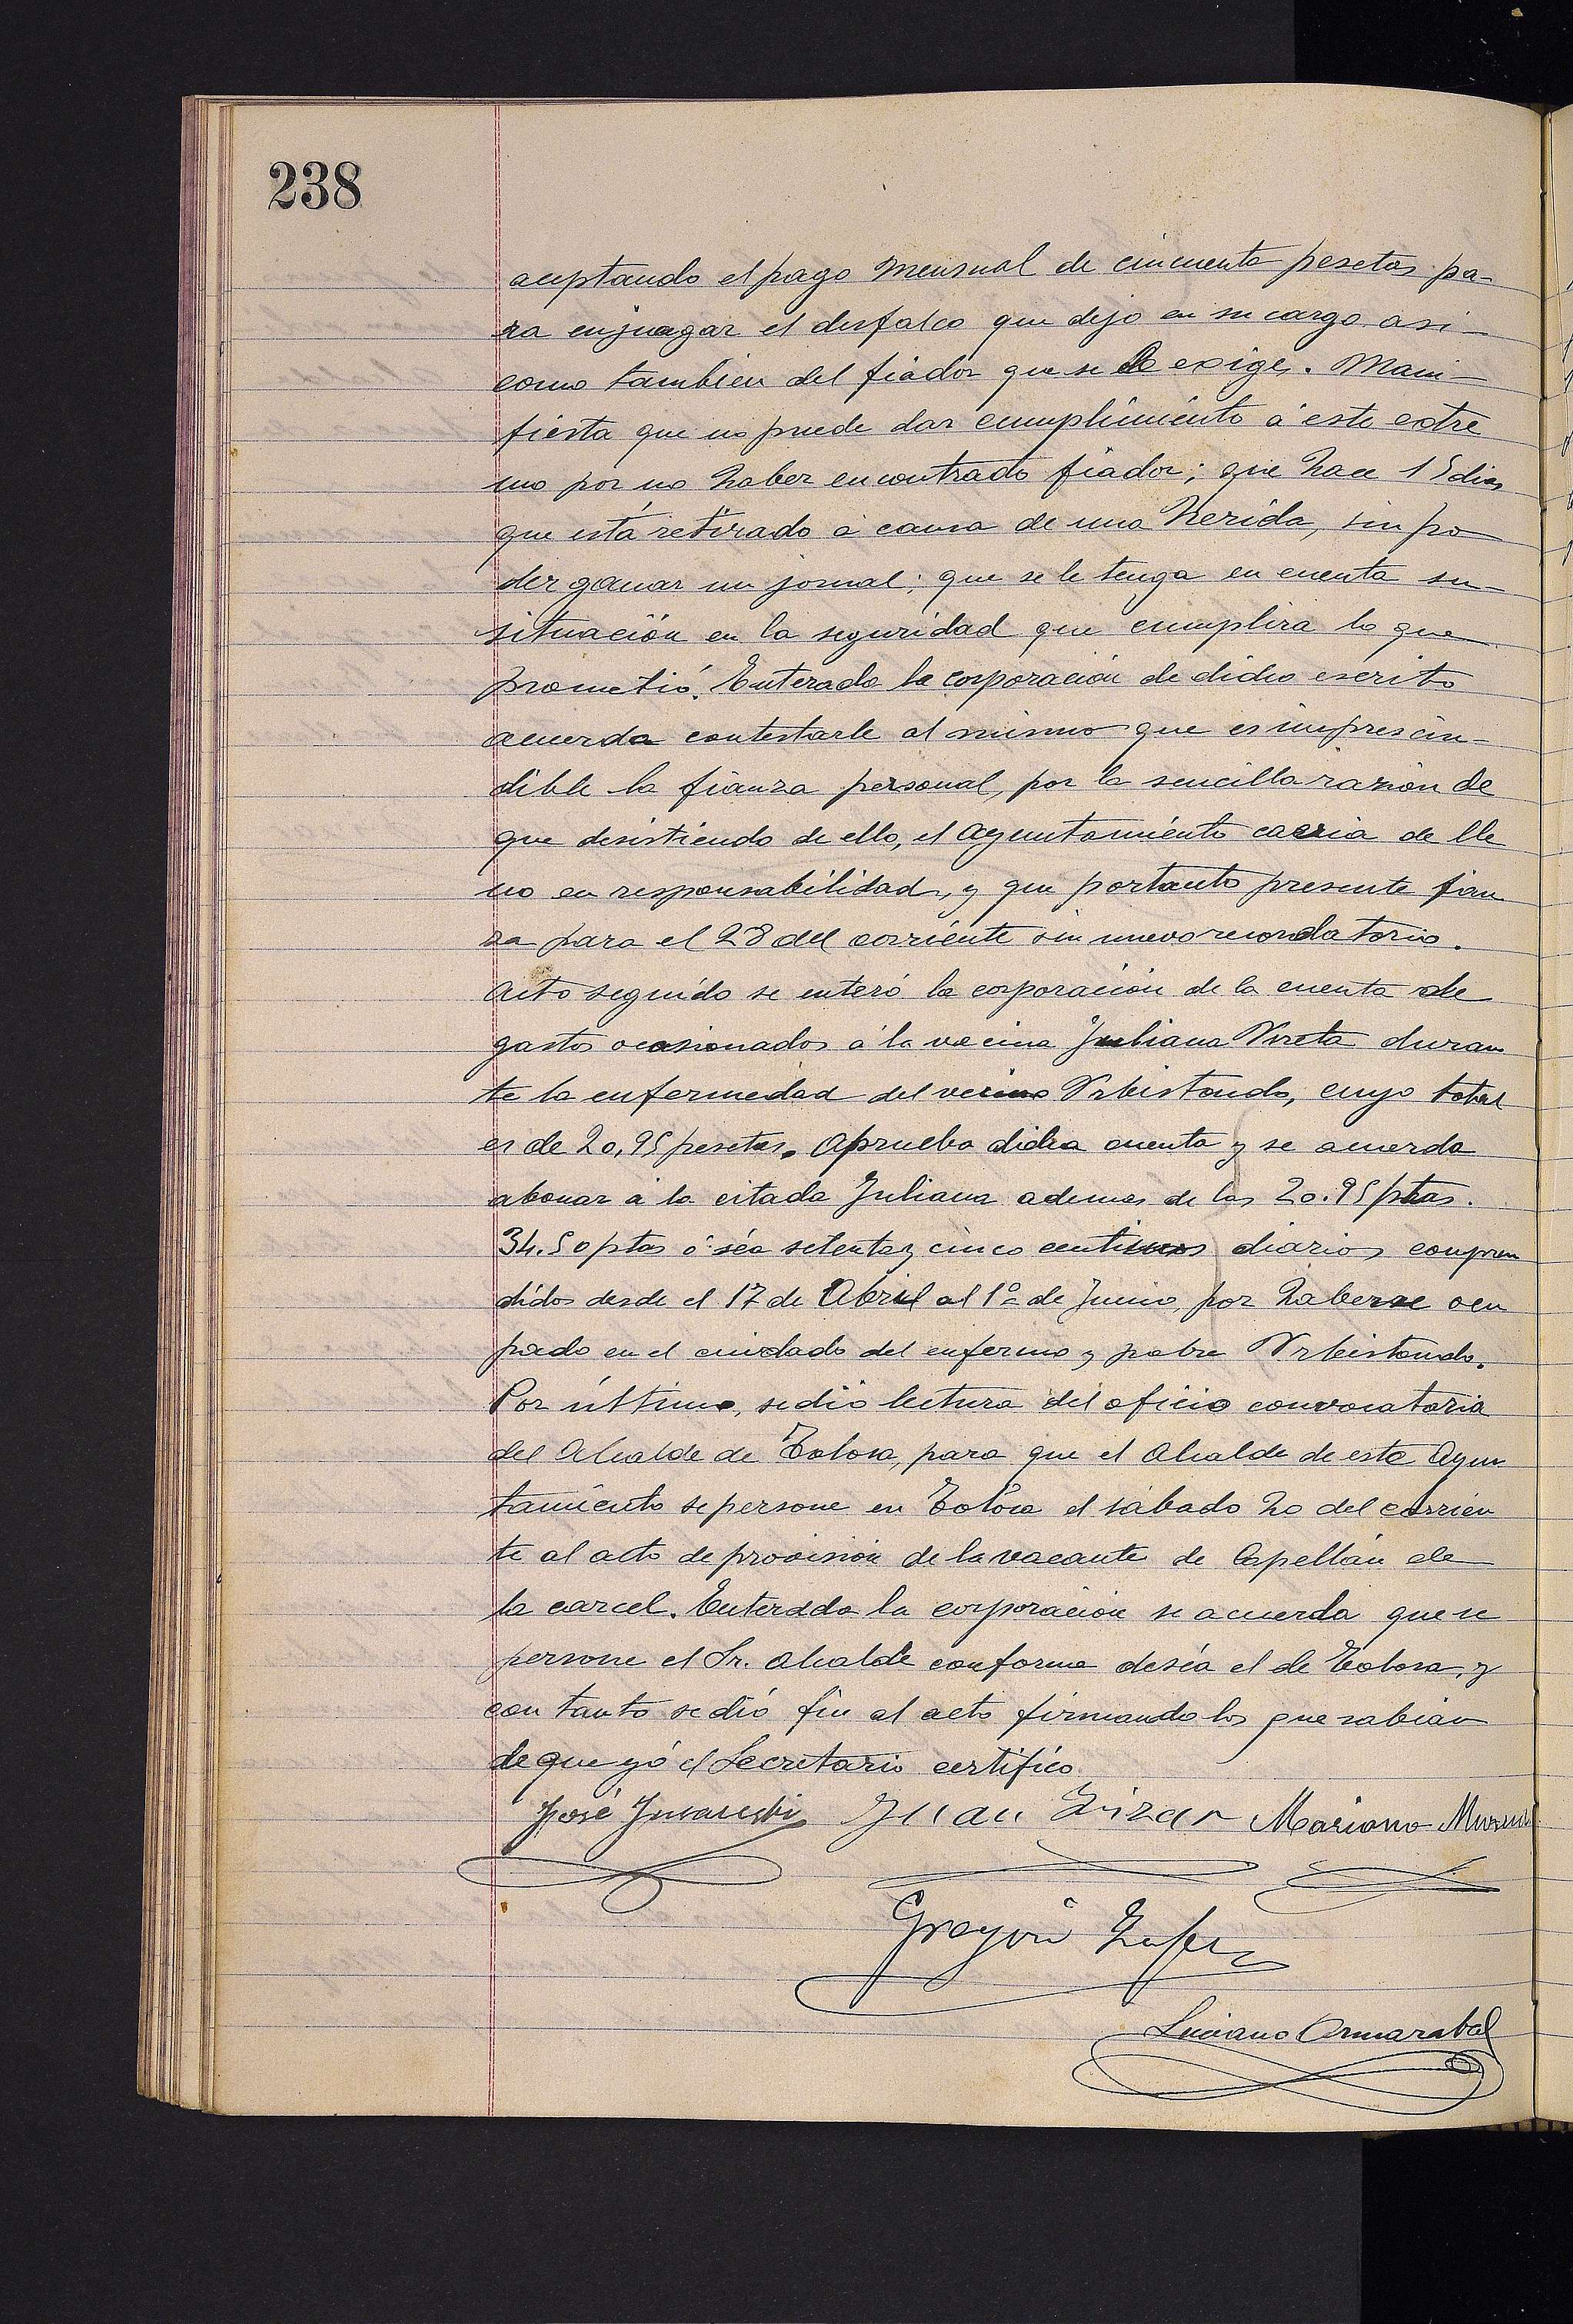 238
aceptando el pago mensual de cincuenta pesetas pa-
ra enjuagar el desfalco que dejo en su cargo asi-
como tambien del fiador que se le exige. Mani-
fiesta que no puede dar cumplimiento á este extre
mo por no haber encontrado fiador; que hace 15 dias
que está retirado á causa de una herida, sin po
der ganar un jornal; que se le tenga en cuenta su
situación en la seguridad que cumplira lo que
prometió. Enterado la corporación de dicho escrito
acuerda contestarle al mismo que es imprescin-
dible la fianza personal, por la sencilla razón de
que desistiendo de ello, el Ayuntamiento caeria de lle
no en responsabilidad, y que portanto presente fian
za para el 28 del corriente sin nuevo recordatorio.
Acto seguido se enteró la corporación de la cuenta de
gastos ocasionados á la vecina Juliana Ureta duran
te la enfermedad del vecino Urbistondo, cuyo total
es de 20,95 pesetas. Aprueba dicha cuenta y se acuerda
abonar á la citada Juliana ademas de las 20.95 ptas.
34.50 ptas ó séa setenta y cinco centimos diarios compren
didos desde el 17 de Abril al 1º de Junio, por haberse ocu
pado en el cuidado del enfermo y pobre Urbistondo.
Por último, se dió lectura del oficio convocatoria
del Alcalde de Tolosa, para que el Alcalde de este Ayun
tamiento se persone en Tolosa el sábado 20 del corrien
te al acto de provisión de la vacante de Capellán de
la carcel. Enterado la corporación se acuerda que se
persone el Sr. Alcalde conforme deséa el de Tolosa, y
con tanto se dió fin al acto firmando los que sabian
de que yó el Secretario certifico.
José Juan Mariano
Luciano